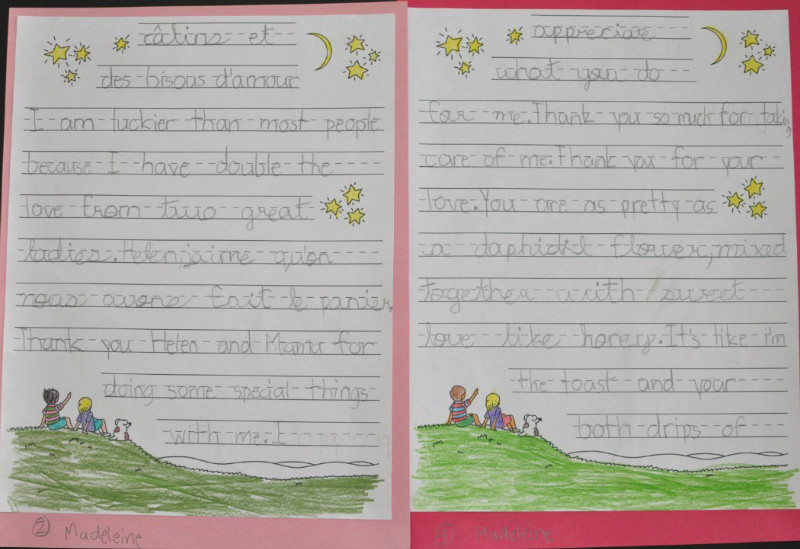 câlins et
des bisous d'amour
I am luckier than most people
because I have double the
love from two great
ladies. Helen j'aime qu'on
nous avons fait le panier
Thank you Helen and Mama for
doing some special things
with me. I
② Madeleine
appreciate
what you do
for me. Thank you so much for takin
care of me. Thank you for your
love. You are as pretty as
a daphidil flower, mixed
together with sweet
love like honey. It's like i'm
the toast and your
both drips of
Madeleine